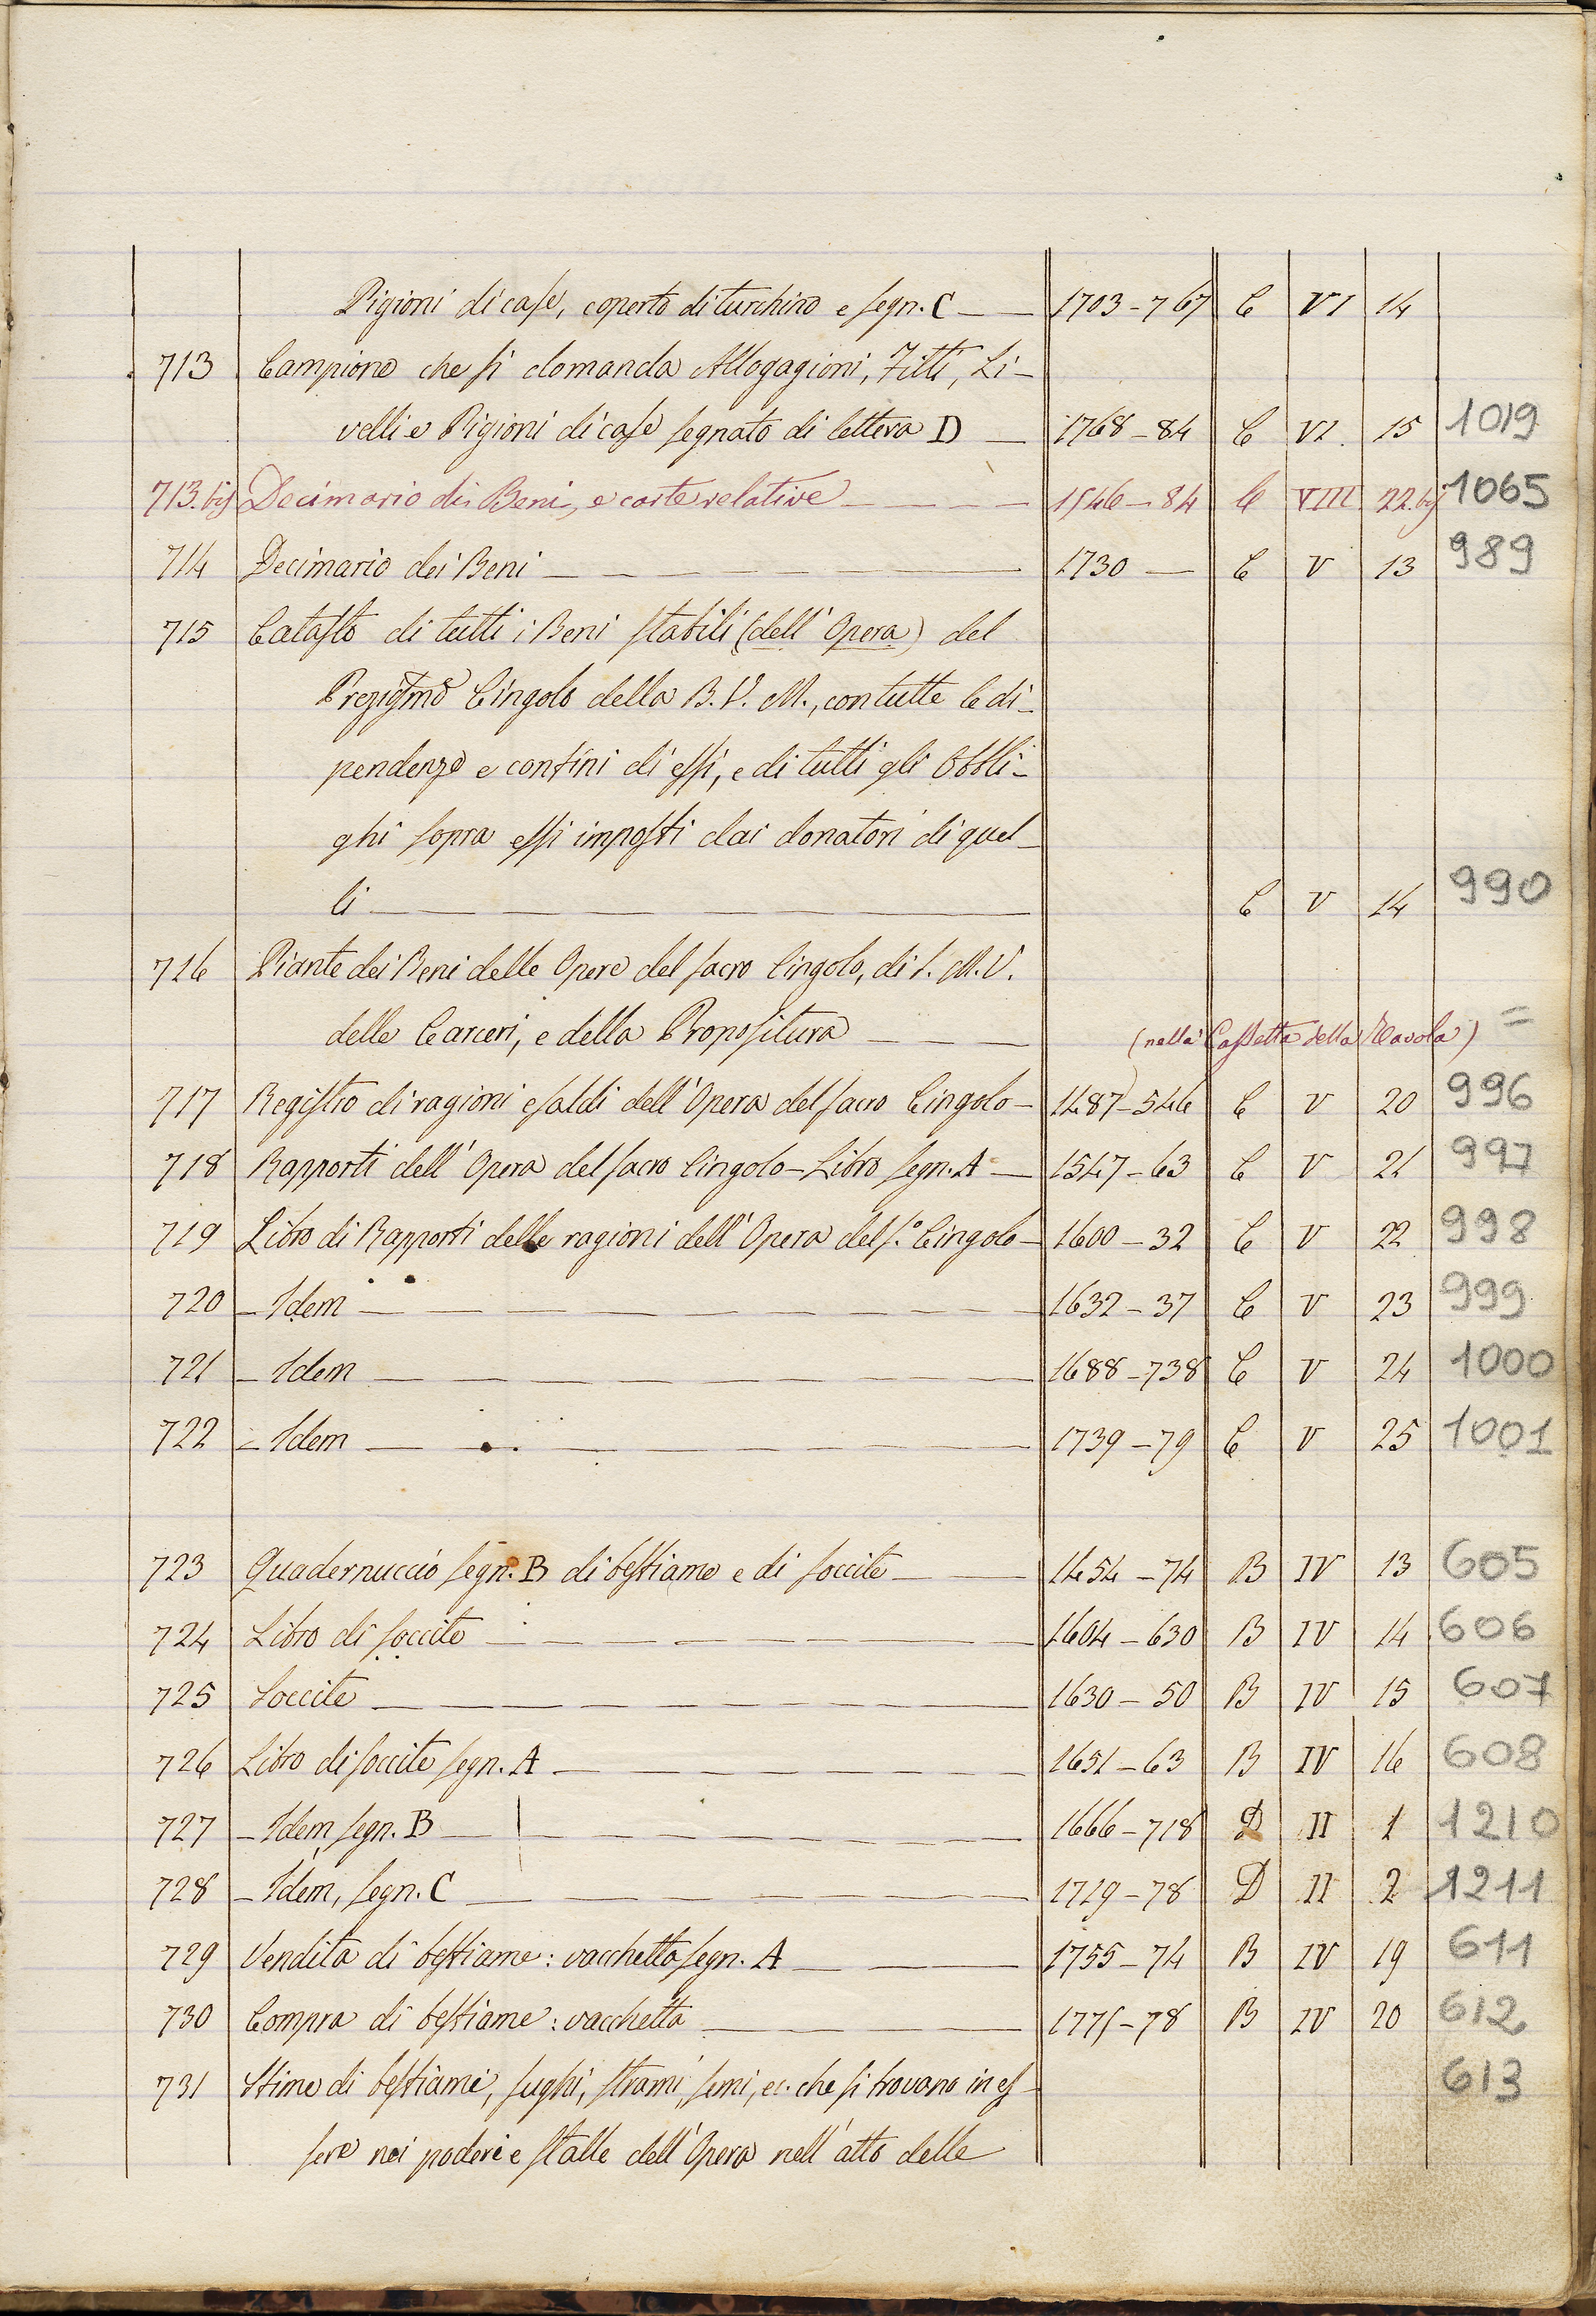 Pigioni di case, coperto di turchino e segn. C — — 1703-767 C VI 14
713 Campione che si domanda Allogagioni, Fitti, Li-
velli e Pigioni di case segnato di lettera D — 1768-84 C VI 15 1019
713.bis Decimario dei Beni, e carte relative — — — — 1546-84 C VIII 22.bis 1065
714 Decimario dei Beni — — — — — — 1730 — C V 13 989
715 Catasto di tutti i Beni stabili (dell'Opera) del
Preziosmo Cingolo della B. V. M., con tutte le di-
pendenze e confini di essi, e di tutti gli Obbli-
ghi sopra essi imposti dai donatori di quel-
li — — — — — — — — — C V 14 990
716 Piante dei Beni delle Opere del sacro Cingolo, di S. M. V.
delle Carceri, e della Propositura — — — (nella Cassetta della Tavola) =
717 Registro di ragioni e saldi dell'Opera del sacro Cingolo — 1487-546 C V 20 996
718 Rapporti dell'Opera del sacro Cingolo - Libro segn. A — 1547-63 C V 21 997
719 Libro di Rapporti delle ragioni dell'Opera del s.º Cingolo — 1600-32 C V 22 998
720 - Idem — — — — — — — — — 1632-37 C V 23 999
721 - Idem — — — — — — — — — 1688-738 C V 24 1000
722 - Idem — — — — — — — — — 1739-79 C V 25 1001
723 Quadernuccio segn. B di bestiame e di soccite — — 1454-74 B IV 13 605
724 Libro di soccite — — — — — — — — 1604-630 B IV 14 606
725 Soccite — — — — — — — — — 1630-50 B IV 15 607
726 Libro di soccite segn. A — — — — — — — 1651-63 B IV 16 608
727 - Idem segn. B — — — — — — — — 1666-718 D II 1 1210
728 - Idem, segn. C — — — — — — — — 1719-78 D II 2 1211
729 Vendita di bestiame: vacchetta segn. A — — — 1755-74 B IV 19 611
730 Compra di bestiame: vacchetta — — — 1771-78 B IV 20 612
731 Stime di bestiami, sughi, strami, semi, ec. che si trovano in es- 613
sere nei poderi e stalle dell'Opera nell'atto delle